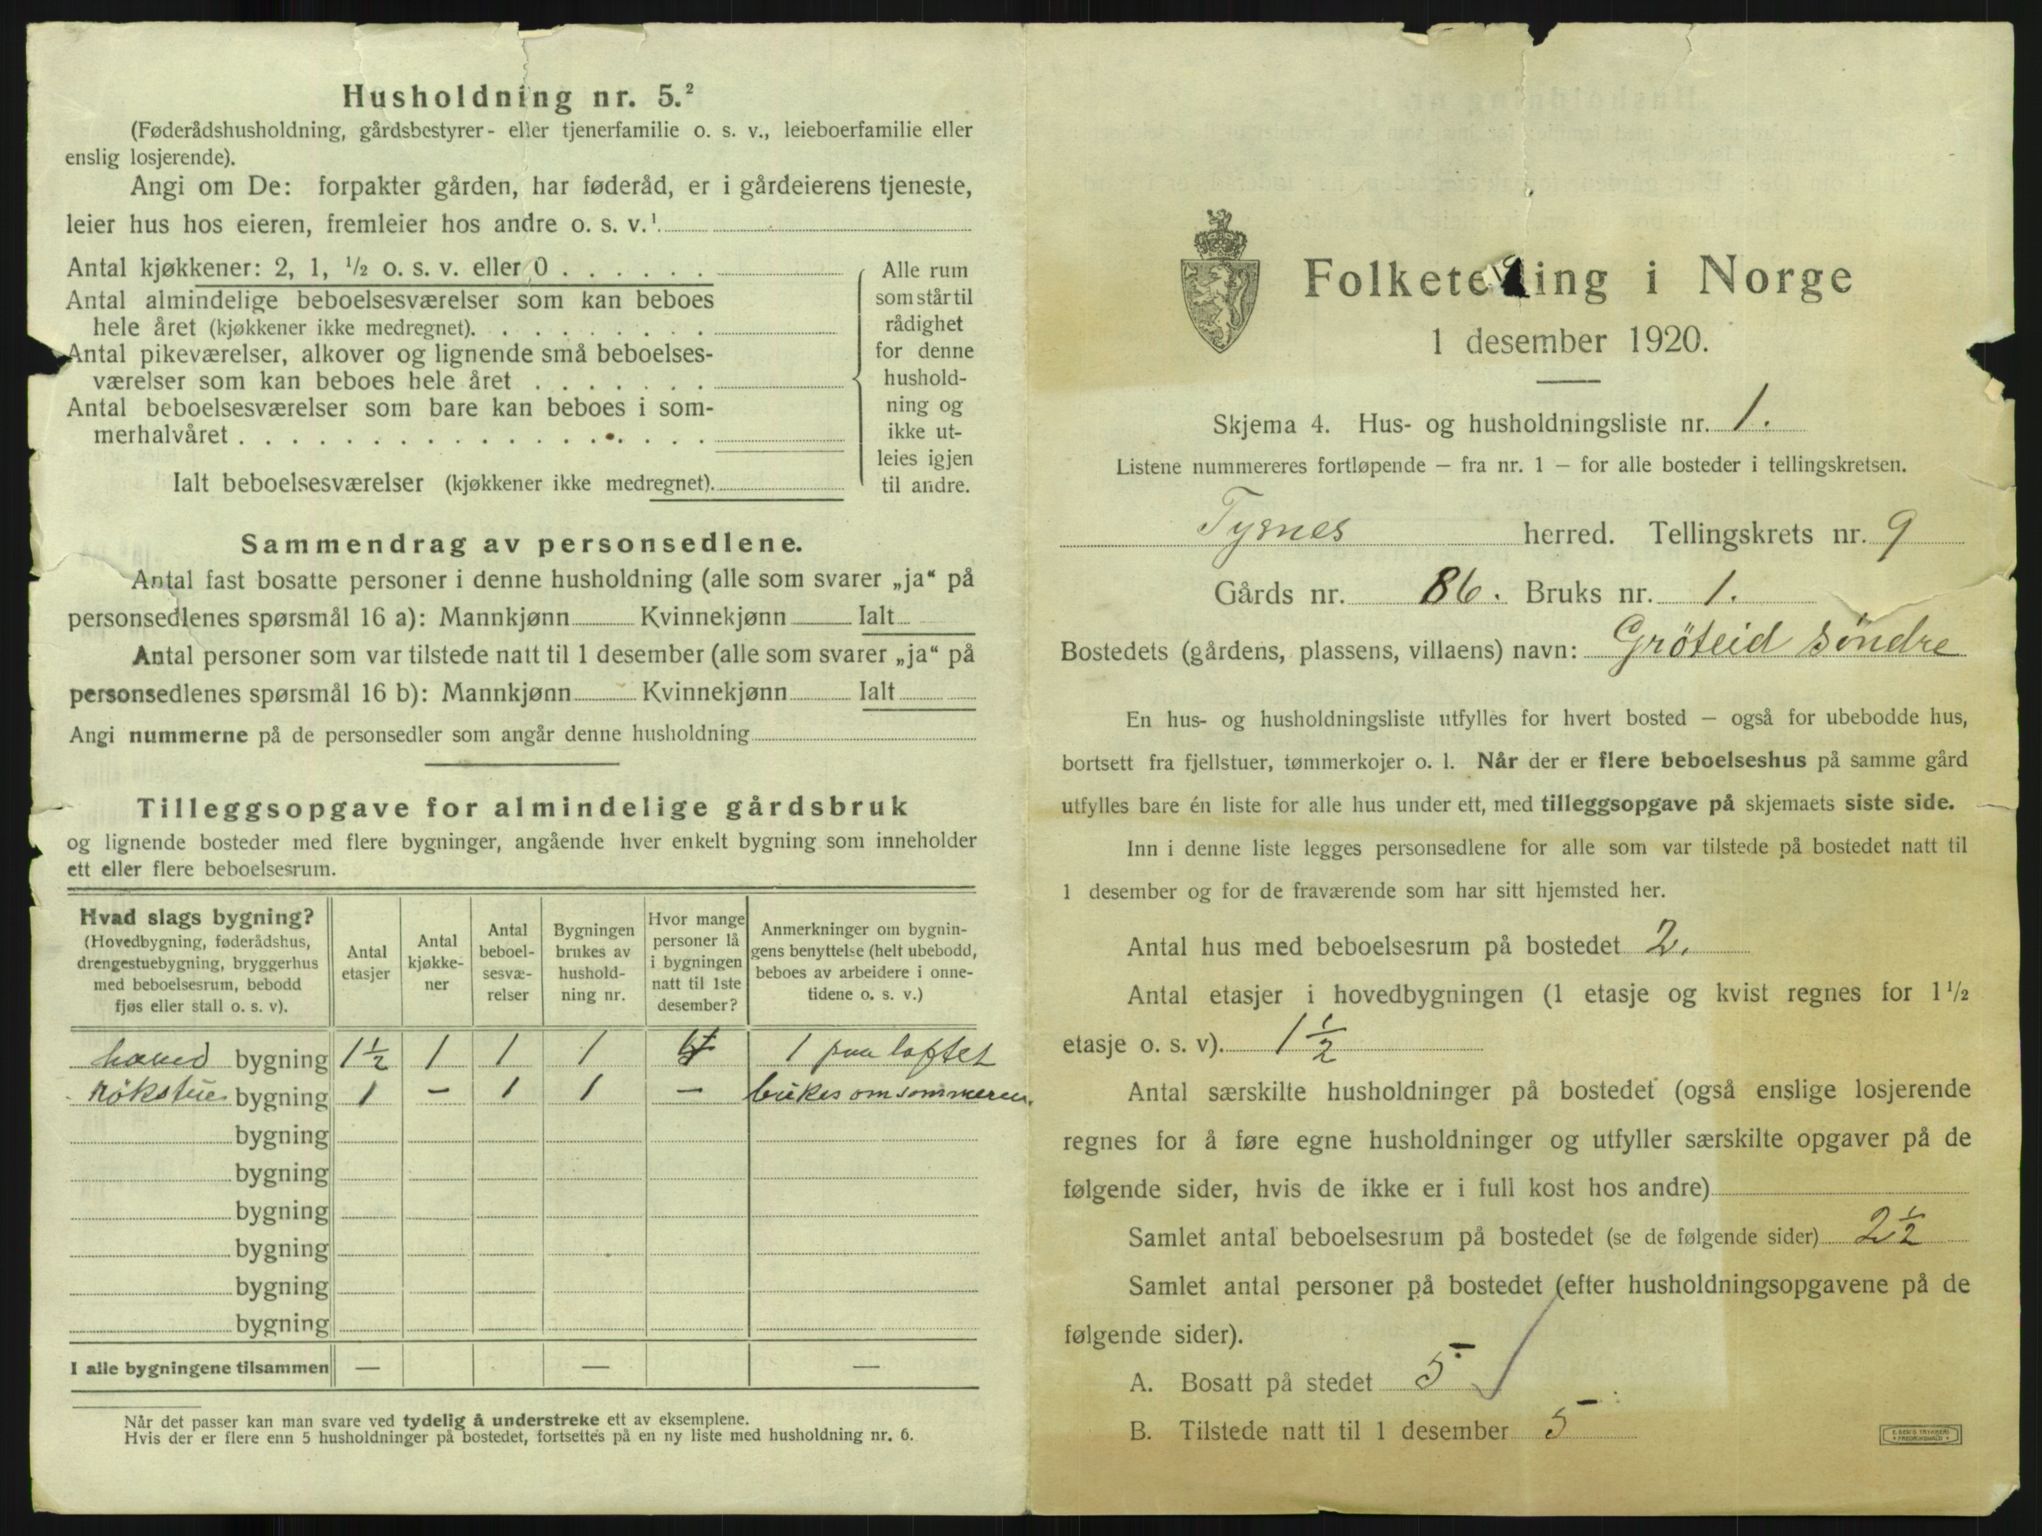 Husholdning nr. 5.²
(Føderådshusholdning, gårdsbestyrer- eller tjenerfamilie o. s. v., leieboerfamilie eller
enslig losjerende).
Angi om De: forpakter gården, har føderåd, er i gårdeierens tjeneste,
leier hus hos eieren, fremleier hos andre o. s. v.¹
Antal kjøkkener: 2, 1, ½ o. s. v. eller 0
Antal almindelige beboelsesværelser som kan beboes
hele året (kjøkkener ikke medregnet).
Antal pikeværelser, alkover og lignende små beboelses-
værelser som kan beboes hele året
Antal beboelsesværelser som bare kan beboes i som-
merhalvåret
Ialt beboelsesværelser (kjøkkener ikke medregnet).
Alle rum
som står til
rådighet
for denne
hushold-
ning og
ikke ut-
leies igjen
til andre.
Sammendrag av personsedlene.
Antal fast bosatte personer i denne husholdning (alle som svarer „ja“ på
personsedlenes spørsmål 16 a): Mannkjønn Kvinnekjønn Ialt
Antal personer som var tilstede natt til 1 desember (alle som svarer „ja“ på
personsedlenes spørsmål 16 b): Mannkjønn Kvinnekjønn Ialt
Angi nummerne på de personsedler som angår denne husholdning
Tilleggsopgave for almindelige gårdsbruk
og lignende bosteder med flere bygninger, angående hver enkelt bygning som inneholder
ett eller flere beboelsesrum.
Hvad slags bygning?
(Hovedbygning, føderådshus,
drengestuebygning, bryggerhus
med beboelsesrum, bebodd
fjøs eller stall o. s. v).
Antal
etasjer
Antal
kjøkke-
ner
Antal
beboel-
sesvæ-
relser
Bygningen
brukes av
hushold-
ning nr.
Hvor mange
personer lå
i bygningen
natt til 1ste
desember?
Anmerkninger om bygnin-
gens benyttelse (helt ubebodd,
beboes av arbeidere i onne-
tidene o. s. v.)
bygning 1½ 1 1 1 1 paa loftet
Røkstue bygning 1 — 1 1 — bukes om sommeren.
bygning
bygning
bygning
bygning
bygning
bygning
I alle bygningene tilsammen — — —
Når det passer kan man svare ved tydelig å understreke ett av eksemplene.
Hvis der er flere enn 5 husholdninger på bostedet, fortsettes på en ny liste med husholdning nr. 6.
Folketelling i Norge
1 desember 1920.
Skjema 4. Hus- og husholdningsliste nr. 1.
Listene nummereres fortløpende — fra nr. 1 — for alle bosteder i tellingskretsen.
Tysnes herred. Tellingskrets nr. 9
Gårds nr. 86. Bruks nr. 1.
Bostedets (gårdens, plassens, villaens) navn: Grøteid søndre
En hus- og husholdningsliste utfylles for hvert bosted — også for ubebodde hus,
bortsett fra fjellstuer, tømmerkojer o. l. Når der er flere beboelseshus på samme gård
utfylles bare én liste for alle hus under ett, med tilleggsopgave på skjemaets siste side.
Inn i denne liste legges personsedlene for alle som var tilstede på bostedet natt til
1 desember og for de fraværende som har sitt hjemsted her.
Antal hus med beboelsesrum på bostedet 2.
Antal etasjer i hovedbygningen (1 etasje og kvist regnes for 1½
etasje o. s. v). 1½
Antal særskilte husholdninger på bostedet (også enslige losjerende
regnes for å føre egne husholdninger og utfyller særskilte opgaver på de
følgende sider, hvis de ikke er i full kost hos andre)
Samlet antal beboelsesrum på bostedet (se de følgende sider) 2½
Samlet antal personer på bostedet (efter husholdningsopgavene på de
følgende sider).
A. Bosatt på stedet 5
B. Tilstede natt til 1 desember 5